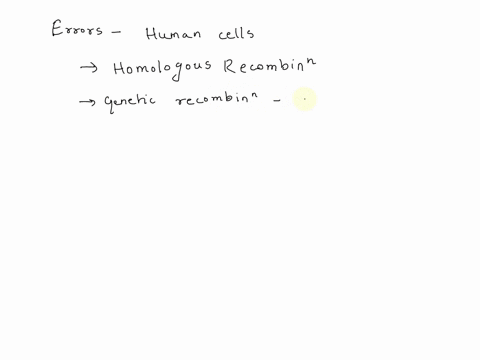 Errors - Human cells
→ Homologous Recombinⁿ
→ Genetic recombinⁿ -